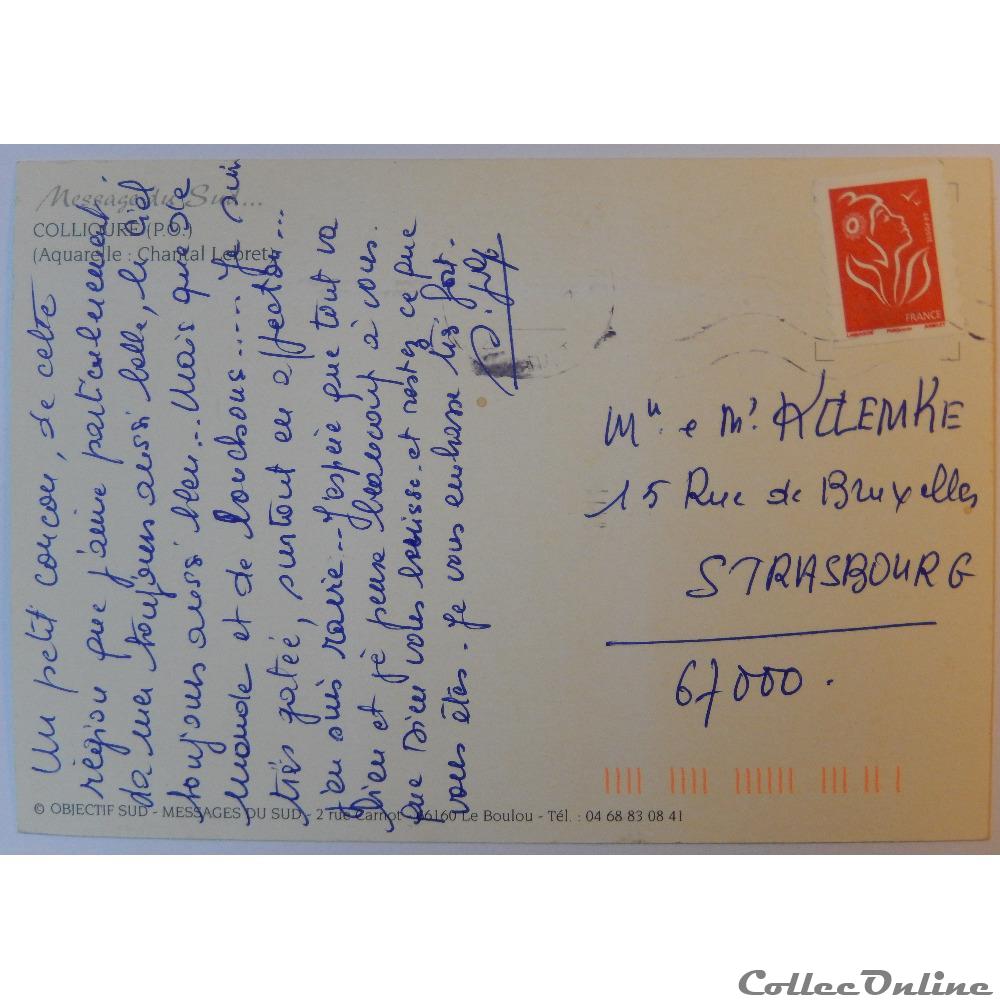 Message du Sud...
COLLIOURE (P.O.)
(Aquarelle : Chantal Lebret)
Un petit coucou, de cette
région que j'aime particulièrement
la mer toujours aussi belle, le ciel
toujours aussi bleu... Mais que de
monde et de bouchons..... Je suis
très gatée, surtout en affection...
j'en suis ravie... J'espère que tout va
bien et je pense beaucoup à vous.
que Dieu vous bénisse et restez ce que
vous êtes. Je vous embrasse très fort.
LA POSTE
FRANCE
LAMOUCHE
AUBLET
e Mr KLEMKE
15 Rue de Bruxelles
STRASBOURG
67000.
© OBJECTIF SUD - MESSAGES DU SUD - 2 rue Carnot - 66160 Le Boulou - Tél. : 04 68 83 08 41
CollecOnline